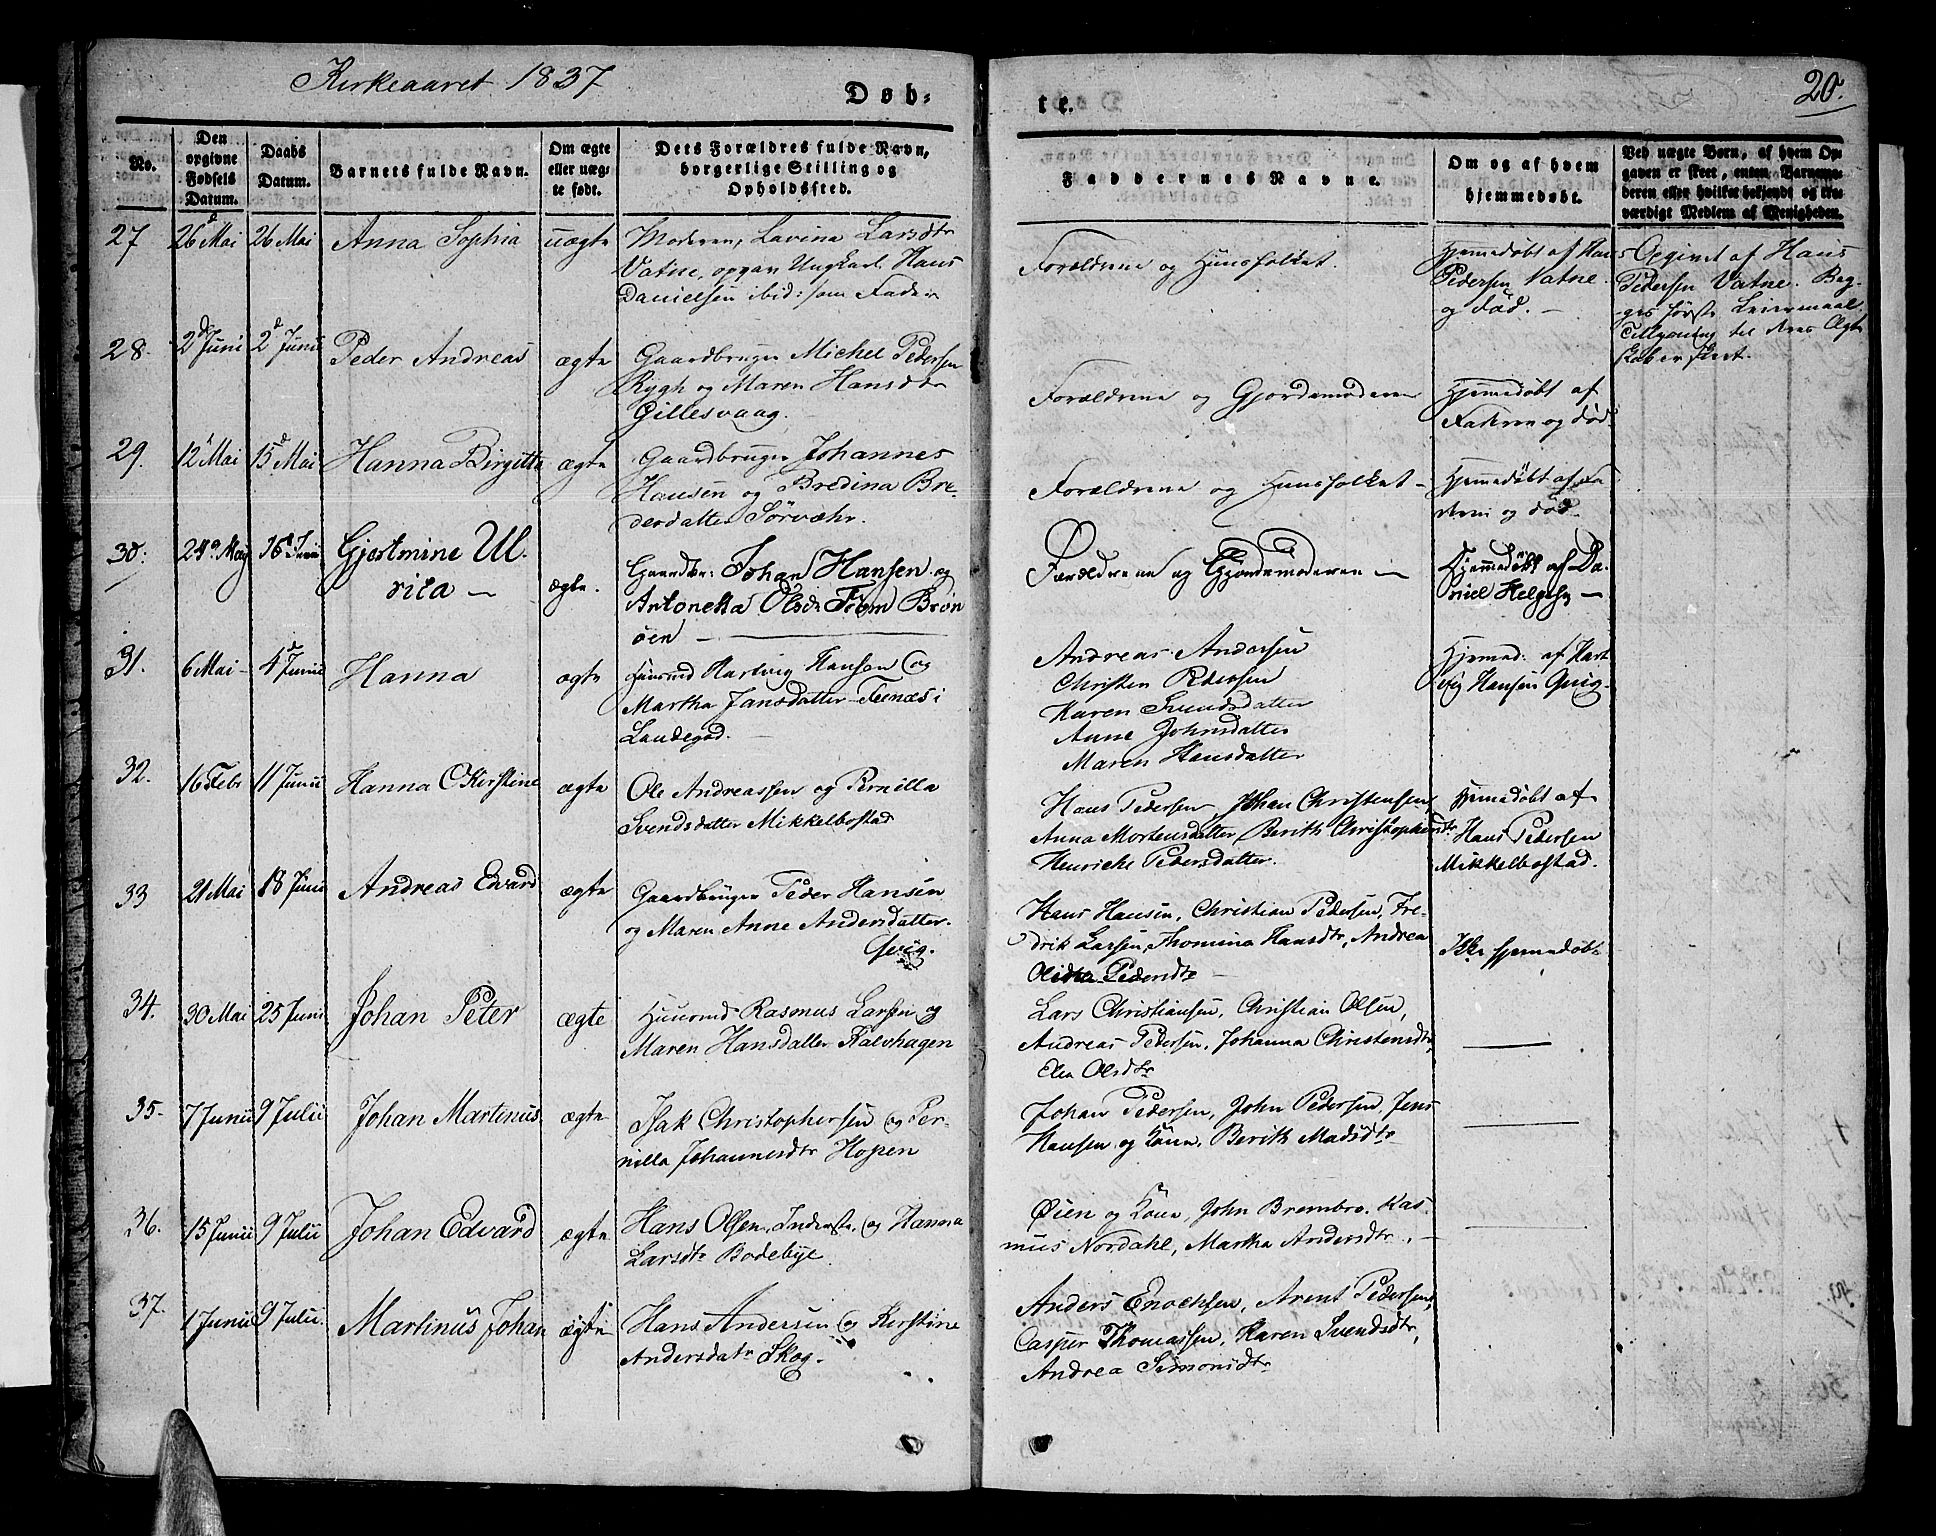 Kirkeaaret 1837
Døb-
te.
20.
No.
Den opgivne Fødsels Datum.
Daabs Datum.
Barnets fulde Navn.
Om ægte eller uægte født.
Dets Forældres fulde Navn, borgerlige Stilling og Opholdssted.
Faddernes Navne.
Om og af hvem hjemmedøbt.
Ved uægte Børn, af hvem Opgaven er skeet, enten Barnemoderen eller hvilket bekjendt og troværdigt Medlem af Menigheden.
27 26 Mai 26 Mai Anna Sophia uægte Moderen; Lavina Larsdtr
Vatne, opgav Ungkarl Hans
Danielsen ibid: som Fader
Forældrene og Huusfolket.
Hjemmedøbt af Hans
Pedersen Vatne.
og død. –
Opgivet af Hans
Pedersen Vatne. Beg-
ges første Leiermaal
28. 2d Juni 2d Junii Peder Andreas ægte Gaardbruger Michel Pedersen
Rygh og Maren Hansdtr
Gillesvaag.
Forældrene og Gjordemoderen
Hjemmedøbt af
Faderen og død.
29. 12 Mai 15d Mai Hanna Birgitte ægte Gaardbruger Johannes
Hansen og Bredina Bre-
dersdatter Sörvæhr.
Forældrene og Huusfolket –
Hjemmedøbt af Fa-
deren og död.
30. 24d Maj Gjertmine Ul-
rica –
ægte. Gaardbr: Johan Hansen og
Antonetta Olsdr Brøn
öen –
Forældrene og Gjordemoderen –
Hjemmedöbt af Da-
niel Helgesen –
31. 6 Mai – 4d Junii Hanna ægte Huusmd Hartvig Hansen og
Martha Jansdatter Fernæs i
Landegod. –
Andreas Andersen
Christen Pedersen
Karen Svendsdatter
Anne Johnsdatter
Maren Hansdatter
Hjemmed: af Hart-
vig Hansen Qvig.
32. 16 Febr 11 Junii Hanna Kirstine ægte Ole Andreassen og Pernilla
Svendsdatter Mikkelbostad
Hans Pedersen, Johan Christensen
Anna Mortensdatter Berith Christophersdtr
Henriche Pedersdatter.
Hjemmedøbt af
Hans Pedersen
Mikkelbostad.
33 21 Mai 18 Junii Andreas Edvard ægte Gaardbruger Peder Hansen
og Maren Anne Andersdatter.
Qvig.
Hans Hansen, Christian Pedersen, Fre-
drik Larsen, Thomina Hansdtr, Andrea
Pedersdtr –
Ikke hjemmedøbt
34. 30 Mai 25 Juni Johan Peter ægte Huusmd Rasmus Larsen og
Maren Hansdatter Kalvhagen
Lars Christiansen, Christian Olsen,
Andreas Pedersen, Johanna Christensdtr,
Elen Olsdtr
35. 7 Junii 9 Julii Johan Martinus ægte Isak Christophersen og Per-
nilla Johannesdtr Hopen
Johan Pedersen, John Pedersen, Jens
Hansen og Kone, Berith Madsdtr
36. 15 Junii 9 Julii Johan Edvard ægte Hans Olsen, Inderst, og Hanna
Larsdtr Bodebye.
Øien og Kone, John Brembro, Ras-
mus Nordahl, Martha Andersdtr. –
37. 1 Junii 9 Julii. Martinus Johan ægte Hans Andersen og Kirstine
Andersdatr Skog.
Anders Enochsen, Arent Pedersen,
Casper Thomassen, Karen Svendsdtr,
Andrea Simonsdtr